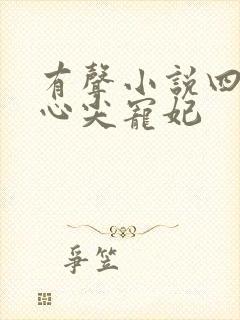 有聲小說四
心尖寵妃
爭笠